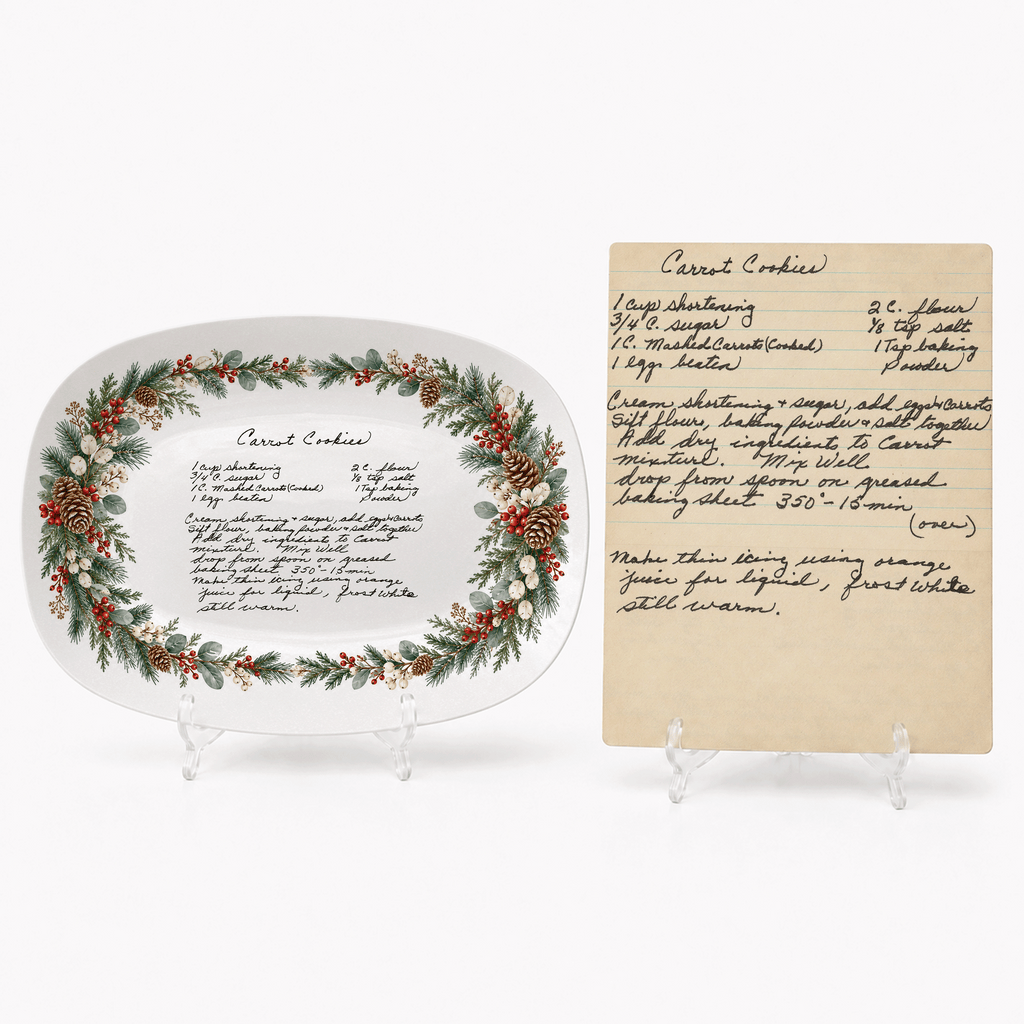 Carrot Cookies
1 cup shortening 2 C. flour
3/4 C. sugar 1/8 tsp salt
1 C. Mashed Carrots (Cooked) 1 Tsp baking
1 egg beaten Powder
Cream shortening + sugar, add eggs + Carrots
Sift flour, baking powder & salt together
Add dry ingredients to Carrot
mixture. Mix Well
drop from spoon on greased
baking sheet 350° - 15 min
Make thin icing using orange
juice for liquid, frost while
still warm.
Carrot Cookies
1 cup shortening 2 C. flour
3/4 C. sugar 1/8 tsp salt
1 C. Mashed Carrots (Cooked) 1 Tsp baking
1 egg beaten Powder
Cream shortening + sugar, add eggs + Carrots
Sift flour, baking powder & salt together
Add dry ingredients to Carrot
mixture. Mix Well
drop from spoon on greased
baking sheet 350° - 15 min
(over)
Make thin icing using orange
juice for liquid, frost while
still warm.